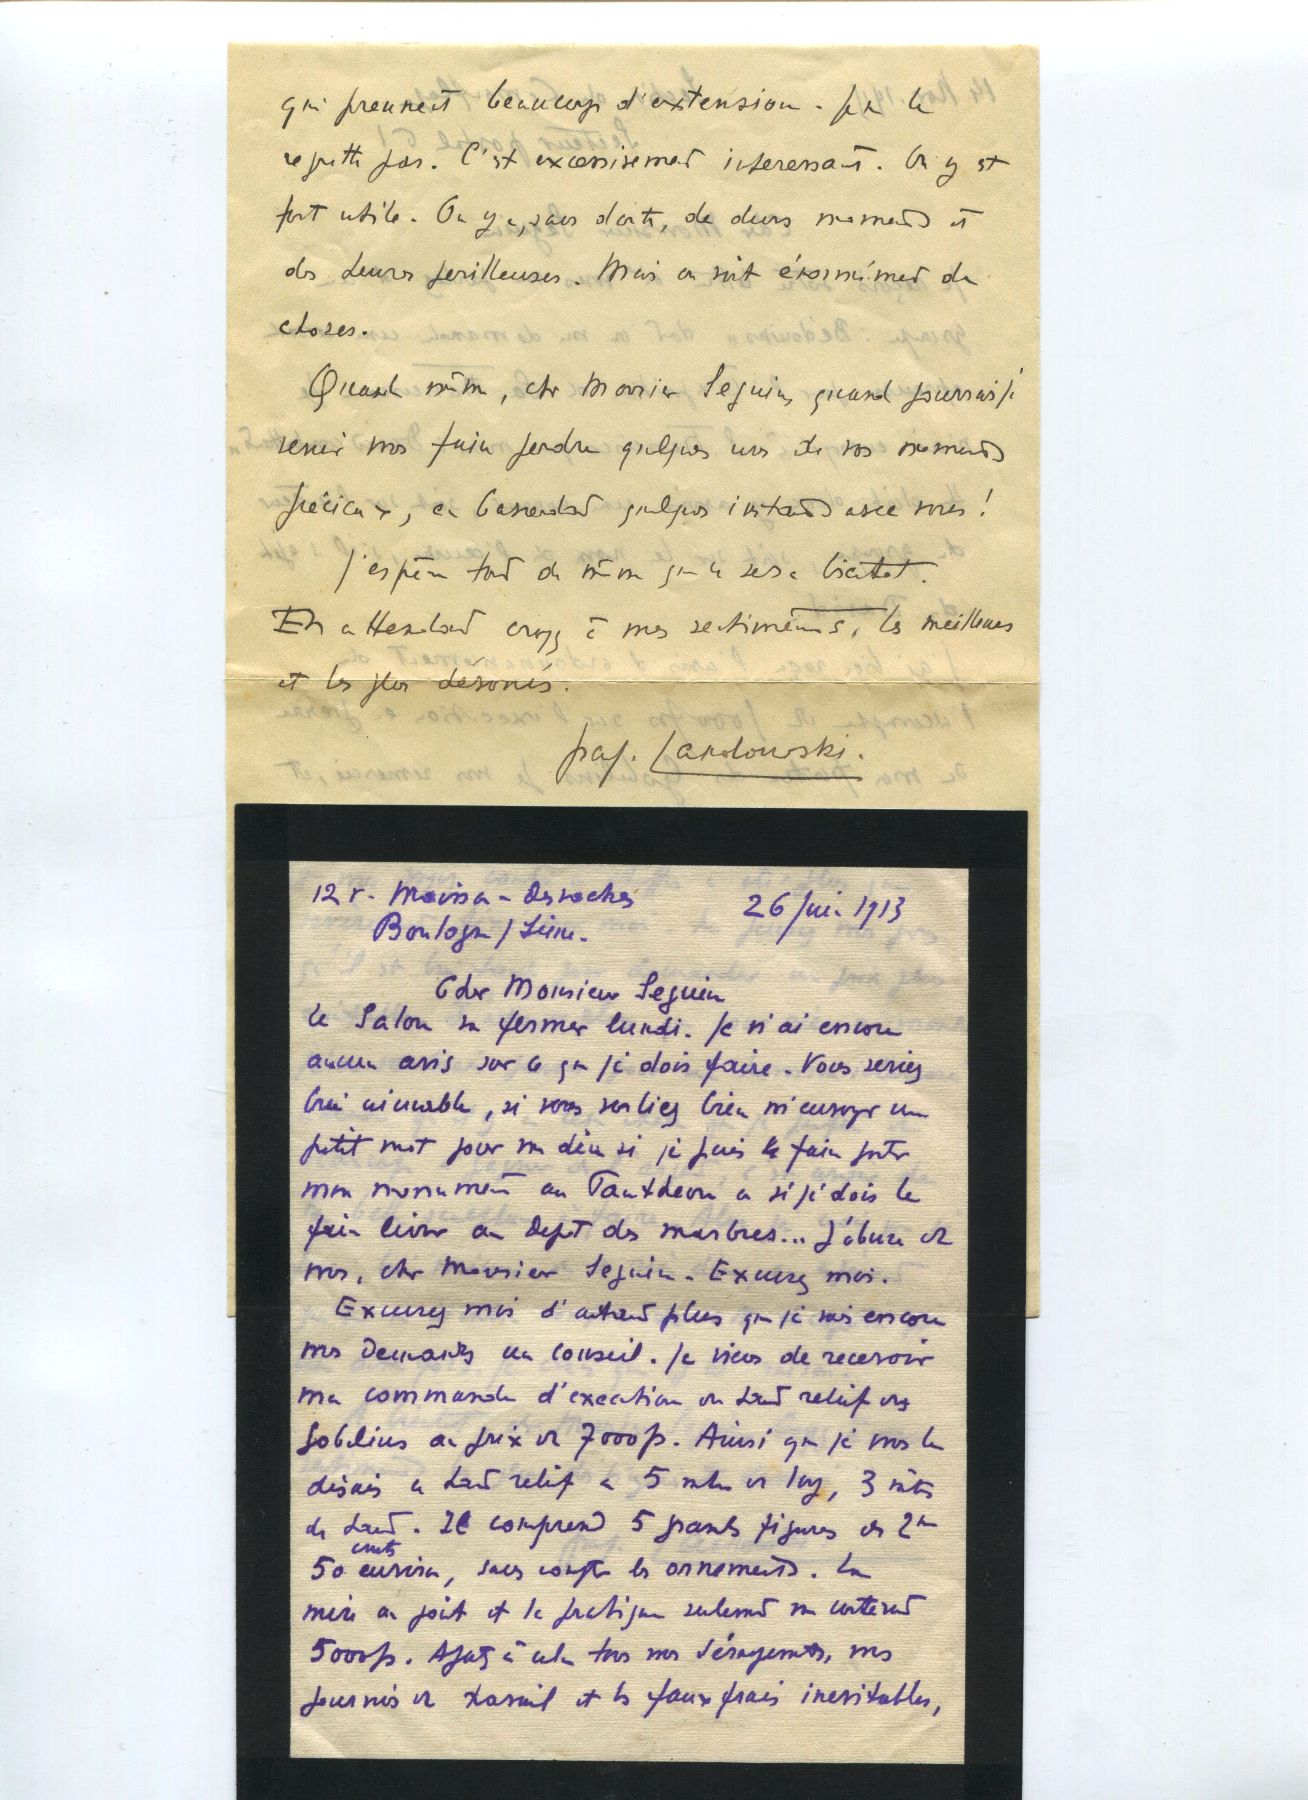 qui prennent beaucoup d'extension. Je ne le
regrette pas. C'est excessivement interessant. On y est
fort utile. On y a, sans doute, de durs moments et
des heures perilleuses. Mais on voit énormément de
choses.
Quand même, cher Monsieur Seguin, quand pourrai-je
venir vous faire perdre quelques uns de vos moments
précieux, en bavardant quelques instants avec vous!
J'espère tout de même que ce sera bientot.
En attendant croyez à mes sentiments, les meilleurs
et les plus dévoués.
Paul Landowski.
12 r. Moisson-Desroches
Boulogne / Seine.
26 Juin 1913
Cher Monsieur Seguin
Le Salon va fermer lundi. Je n'ai encore
aucun avis sur ce que je dois faire. Vous seriez
bien aimable, si vous vouliez bien m'envoyer un
petit mot pour me dire si je puis faire porter
mon monument au Pantheon ou si je dois le
faire livrer au Depot des marbres... J'abuse de
vous, cher Monsieur Seguin. Excusez moi.
Excusez moi d'autant plus que je vais encore
vous demander un conseil. Je viens de recevoir
ma commande d'execution du haut relief des
Gobelins au prix de 7000 fs. Ainsi que je vous le
disais ce haut relief a 5 mtres de long, 3 mts
de haut. Il comprend 5 grandes figures de 2m
50 cmts environ, sans compter les ornements. La
mise au point et la pratique seulement me coutent
5000 fs. Ajoutez à cela tous mes dérangements, mes
journées de travail et les faux frais inevitables,